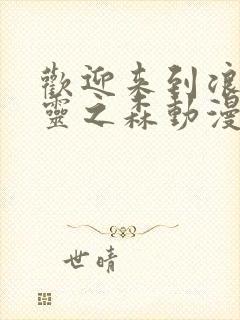 歡迎来到浪
靈之森動漫
世晴